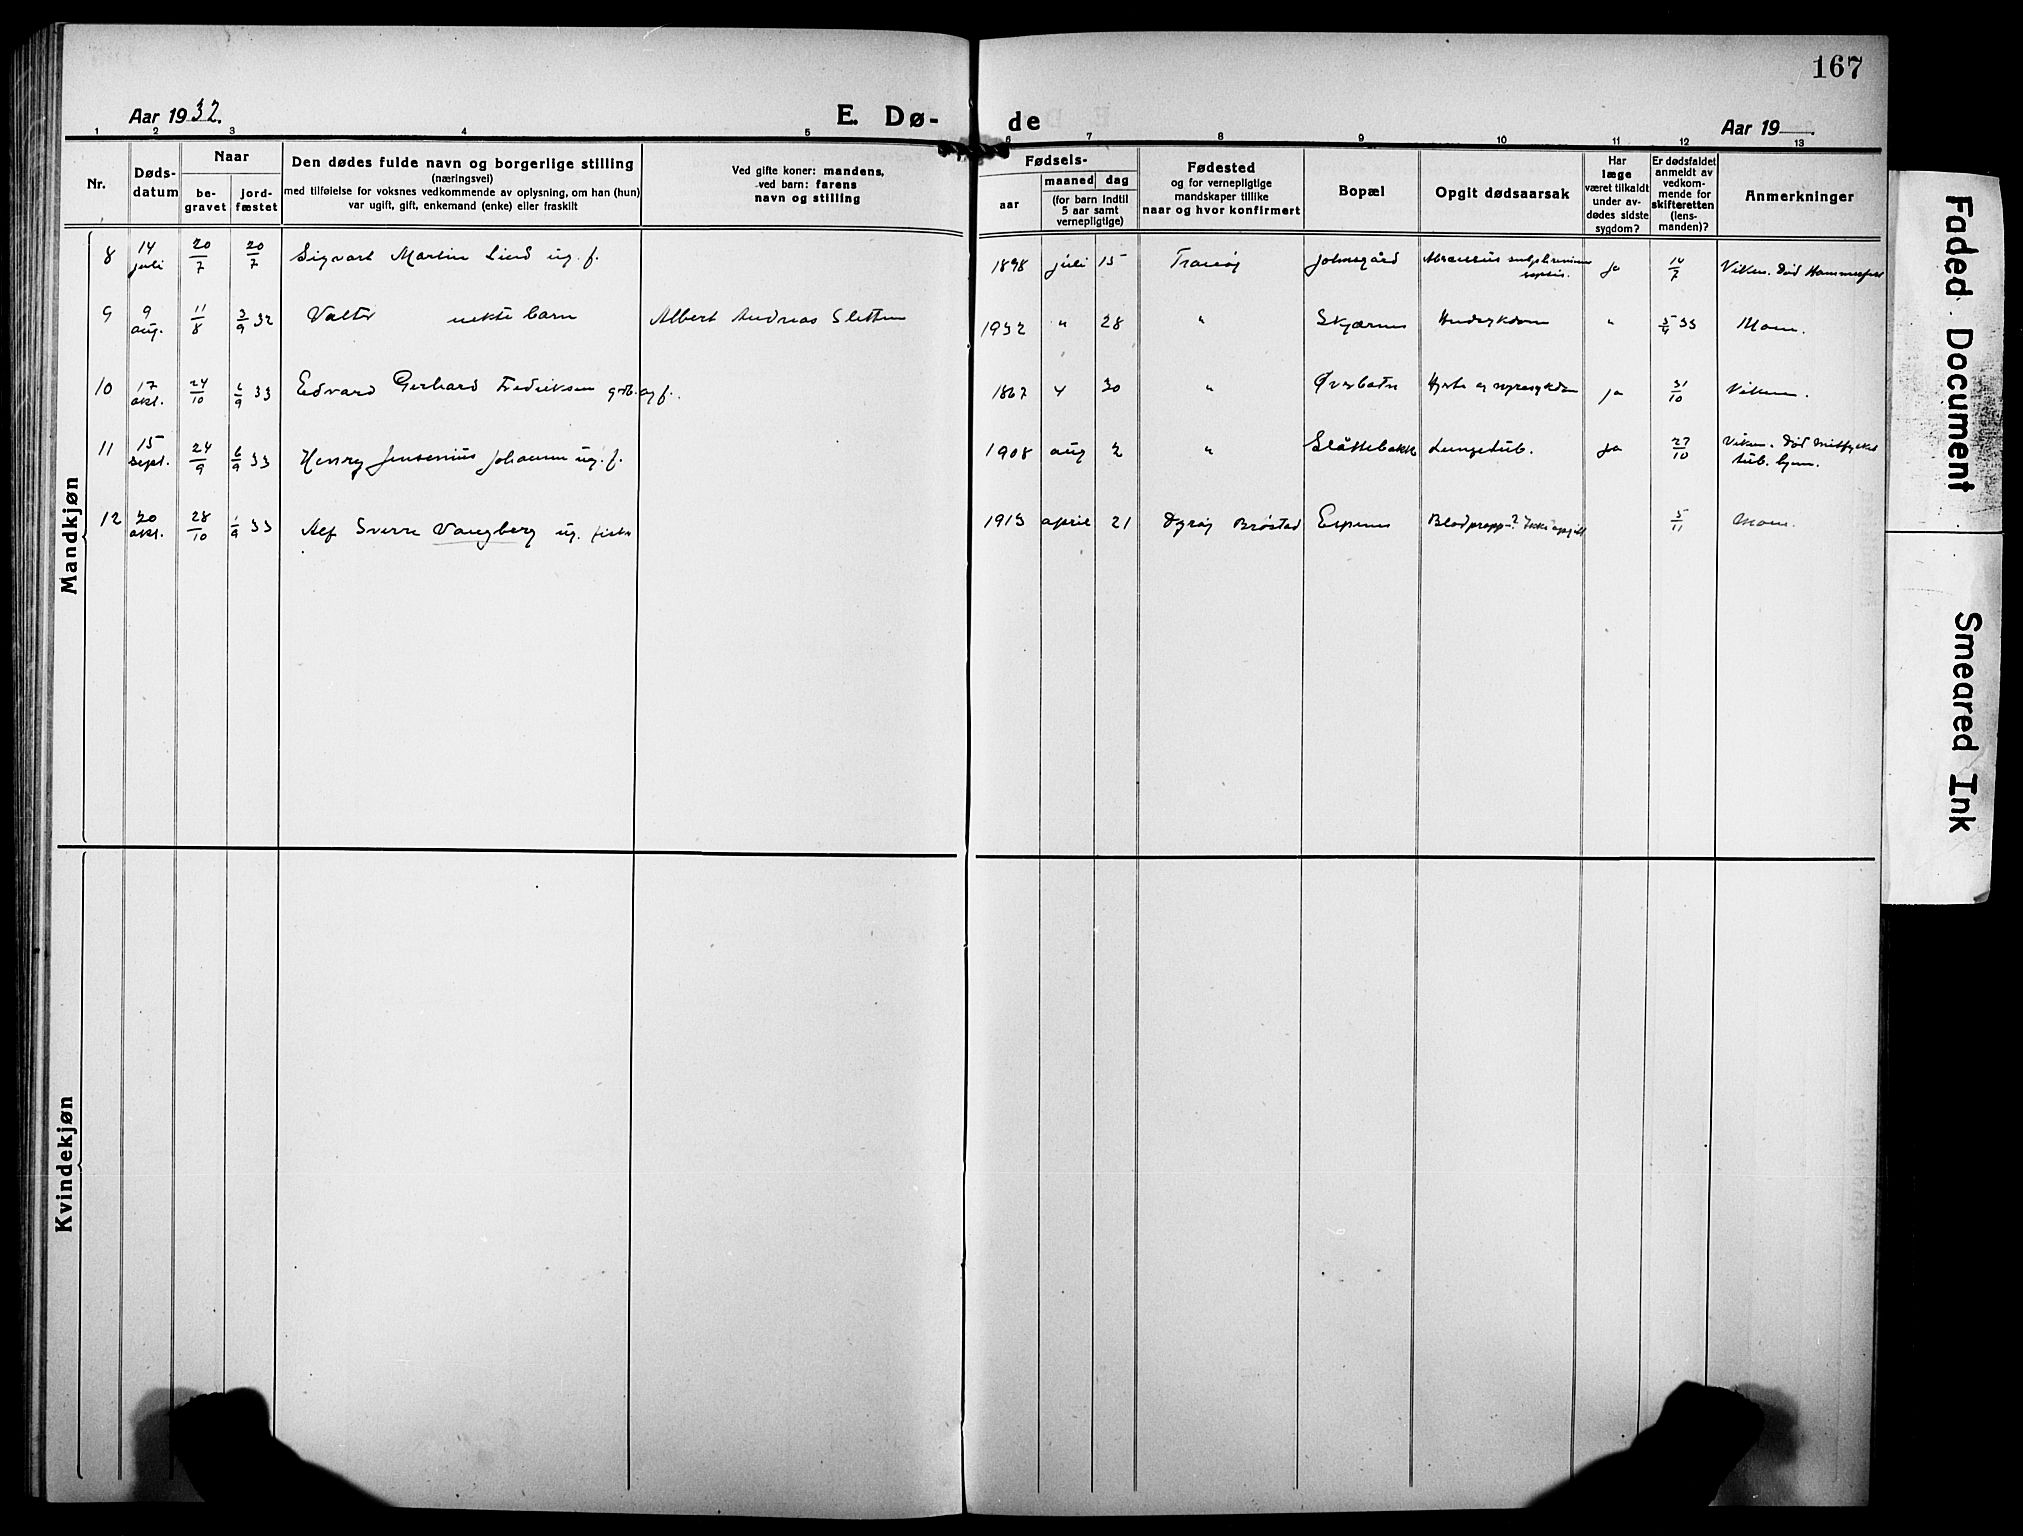 167
Aar 1932.
E. Dø-
de
Aar 19
1 2 3 4 5 6 7 8 9 10 11 12 13
Nr.
Døds-
datum
Naar
be-
gravet
jord-
fæstet
Den dødes fulde navn og borgerlige stilling
(næringsvei)
med tilføielse for voksnes vedkommende av oplysning, om han (hun)
var ugift, gift, enkemand (enke) eller fraskilt
Ved gifte koner: mandens,
ved barn: farens
navn og stilling
Fødsels-
aar
maaned dag
(for barn indtil
5 aar samt
vernepligtige)
Fødested
og for vernepligtige
mandskaper tillike
naar og hvor konfirmert
Bopæl
Opgit dødsaarsak
Har
læge
været tilkaldt
under av-
dødes sidste
sygdom?
Er dødsfaldet
anmeldt av
vedkom-
mende for
skifteretten
(lens-
manden)?
Anmerkninger
Mandkjøn
8 14 juli 20/7 20/7 Sigvart Martin Lind ug. f. 1898 juli 15 Tranøy Johnsgård ja 14/7 Viken. Død Hammerfest
9 9 aug. 11/8 3/9 32 Valter uekte barn Albert Andreas Sletten 1932 " 28 " Skjærnes " 5/4 33 Moen.
10 17 okt. 24/10 6/9 33 Edvard Gerhard Fredriksen grb. og f. 1867 4 30 " Øverbotn Hjerte og nyresykdom ja 31/10 Viken.
11 15 sept. 24/9 6/9 33 Henry Jensenius Johansen ug. f. 1908 aug 2 " Slåttebakk Lungetub. ja 27/10 Viken. Død
tub. hjem.
12 20 okt. 28/10 1/9 33 Alf Sverre Vangberg ug. fisker 1913 april 21 Dyrøy Brøstad Espenes Blodpropp-? Ikke opgitt 5/11 Moen.
Kvindekjøn
Faded Document
Smeared Ink